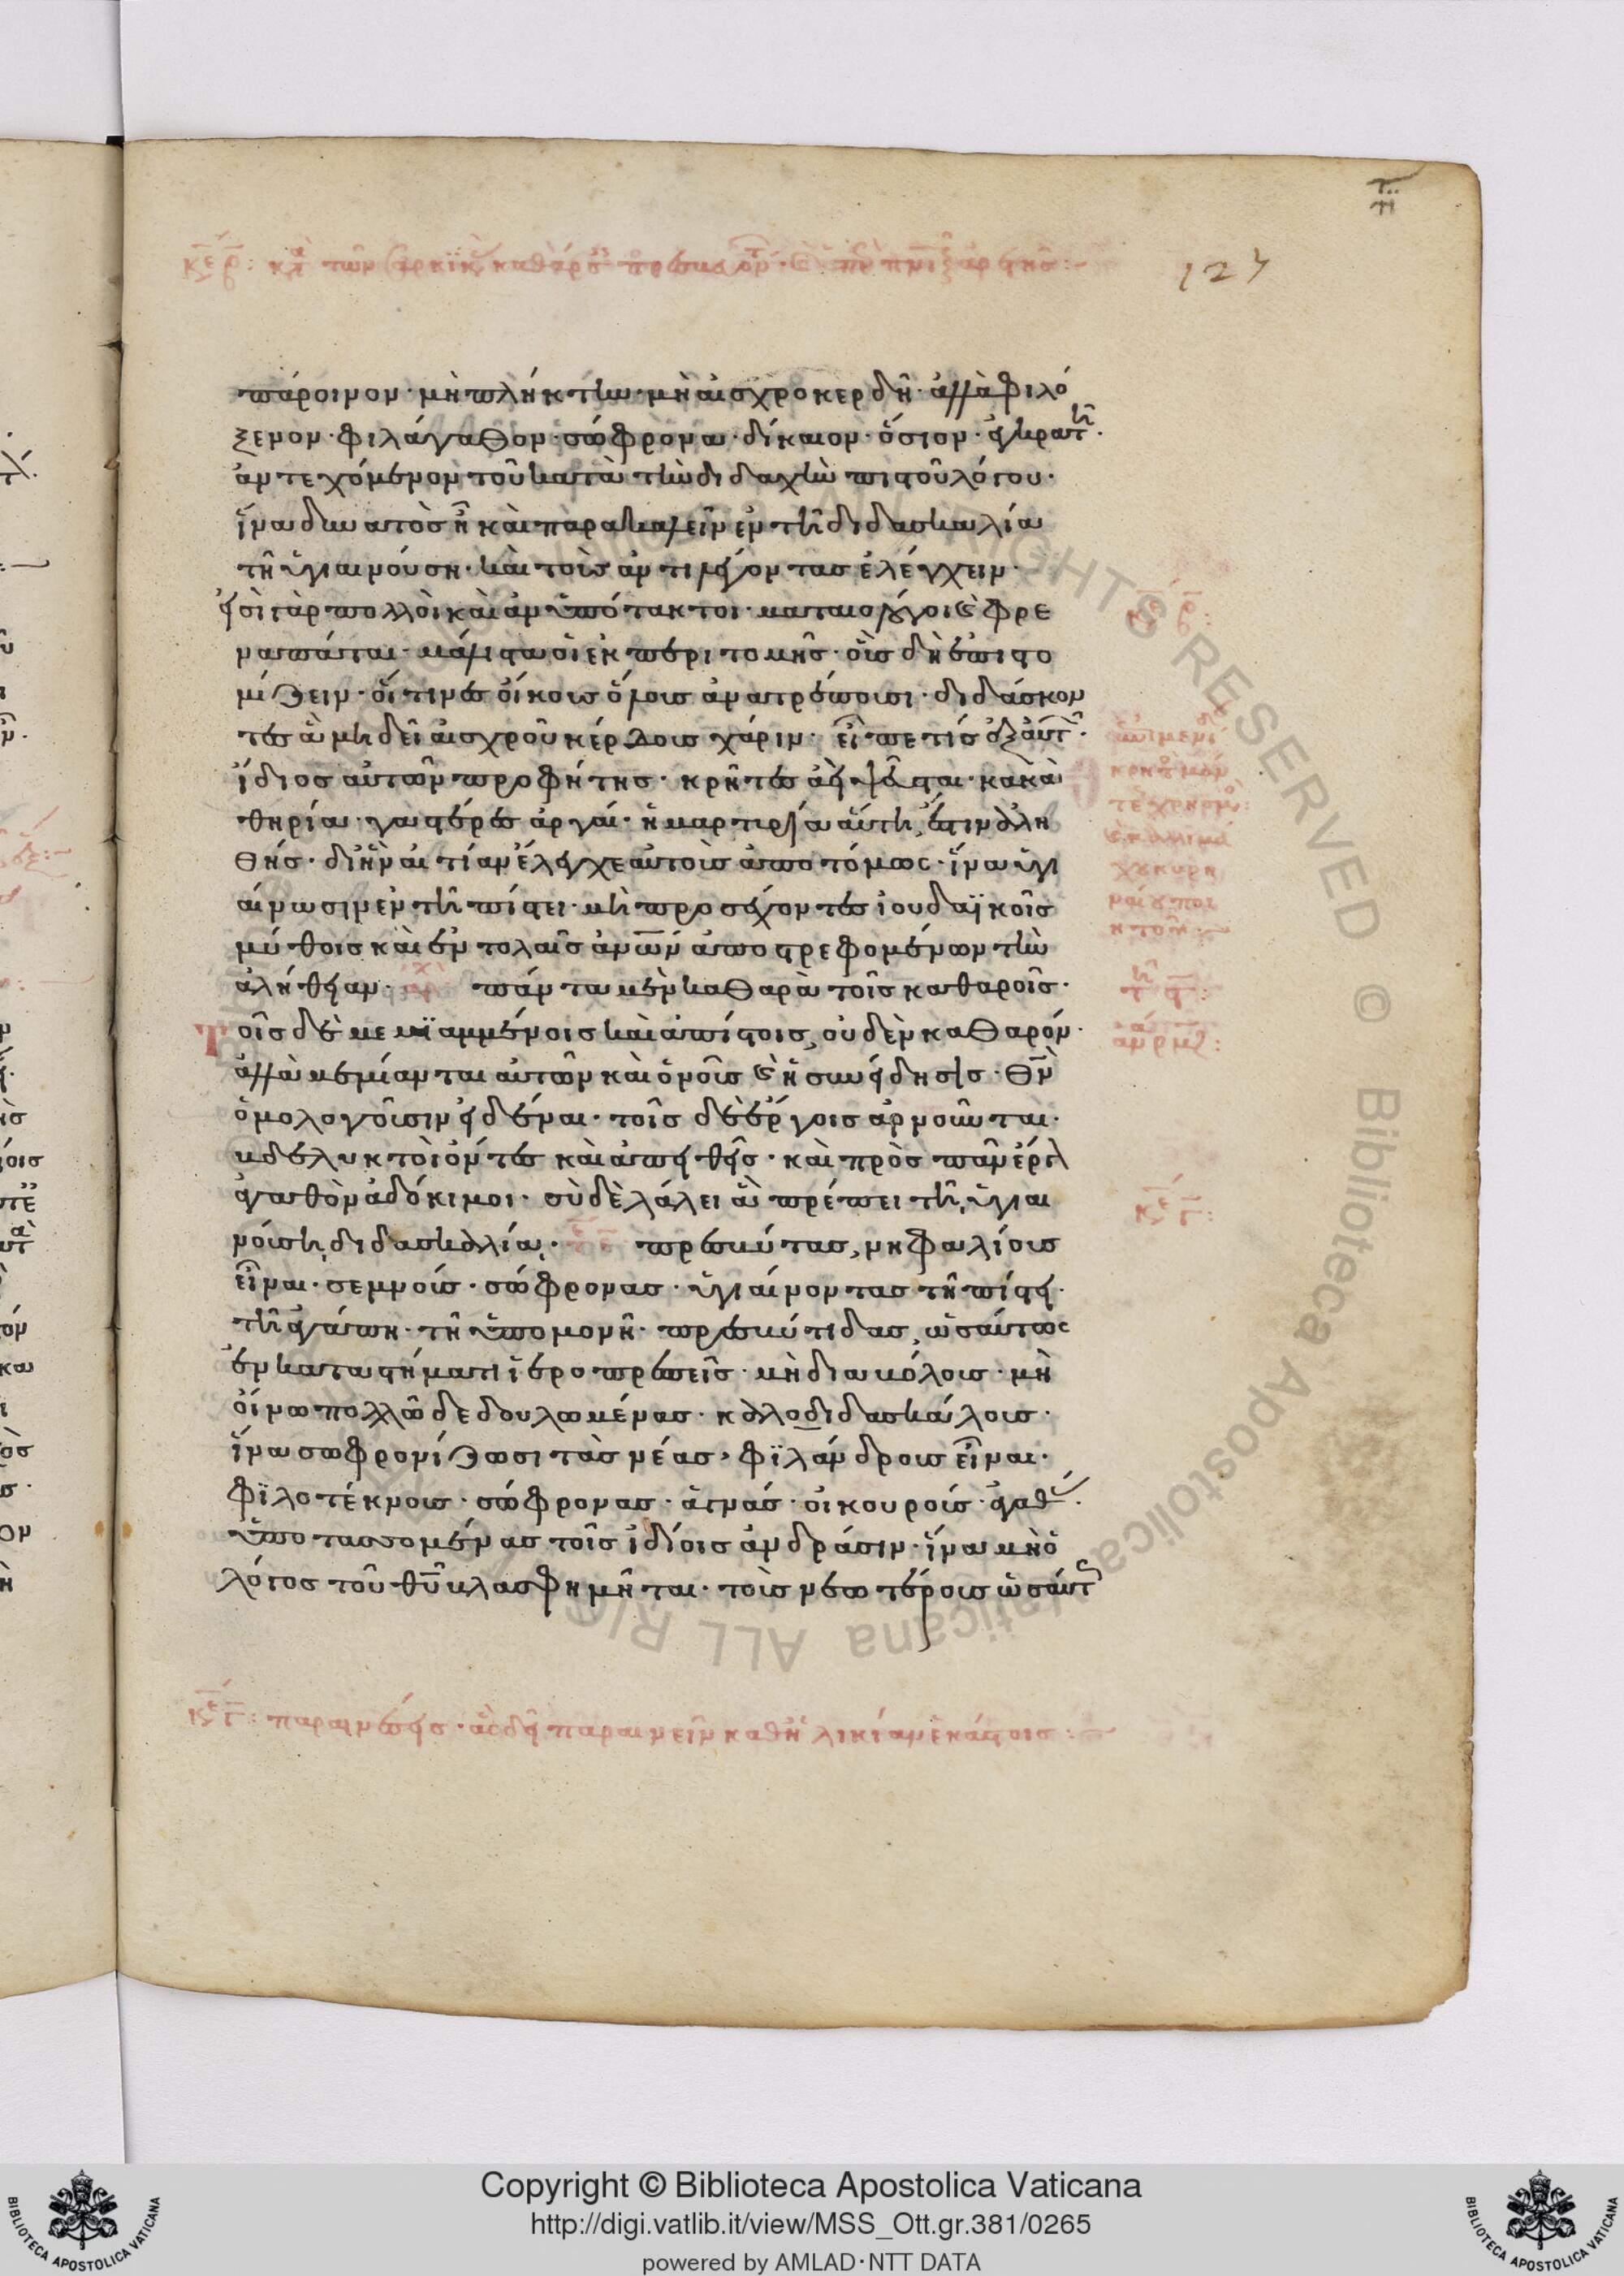 127
πάροινον· μὴ πλήκτην· μὴ αἰσχροκερδῆ· ἀλλὰ φιλό
ξενον· φιλάγαθον· σώφρονα· δίκαιον· ὅσιον· ἐγκρατῆ·
ἀντεχόμενον τοῦ κατὰ τὴν διδαχὴν πιστοῦ λόγου·
ἵνα δυνατὸς ἦ καὶ παρακαλεῖν ἐν τῆ διδασκαλία
τῆ ὑγιαινούση· καὶ τοὺς ἀντιλέγοντας ἐλέγχειν·
εἰσὶ γὰρ πολλοὶ καὶ ἀνυπότακτοι· ματαιολόγοι καὶ φρε
ναπάται· μάλιστα οἱ ἐκ περιτομῆς· οὓς δεῖ ἐπιστο
μίζειν· οἵτινες οἴκους ὅλους ἀνατρέπουσι· διδάσκον
τες ἃ μὴ δεῖ αἰσχροῦ κέρδους χάριν· εἶπε τίς ἐξ αὐτῶν·
ἴδιος αὐτῶν προφήτης· κρῆτες ἀεὶ ψεῦσται· κακὰ
θηρία· γαστέρες ἀργαί· ἡ μαρτυρία αὕτη ἐστὶν ἀλη
θής· δι' ἣν αἰτίαν ἔλεγχε αὐτοὺς ἀποτόμως· ἵνα ὑγι
αίνωσιν ἐν τῆ πίστει· μὴ προσέχοντες ἰουδαϊκοῖς
μύθοις καὶ ἐντολαῖς ἀνων ἀποστρεφομένων τὴν
ἀλήθειαν· πάντα μὲν καθαρὰ τοῖς καθαροῖς·
τοῖς δὲ μεμιαμμένοις καὶ ἀπίστοις, οὐδὲν καθαρόν·
ἀλλὰ μεμίανται αὐτῶν καὶ ὁ νοῦς καὶ ἡ συνείδησις· θν
ὁμολογοῦσιν εἰδέναι· τοῖς δὲ ἔργοις ἀρνοῦνται·
βδελυκτοὶ ὄντες καὶ ἀπειθεῖς· καὶ πρὸς πᾶν ἔργον
ἀγαθὸν ἀδόκιμοι· σὺ δὲ λάλει ἃ πρέπει τῆ ὑγιαι
νούση διδασκαλία· πρεσβύτας, νηφαλίους
εἶναι· σεμνούς· σώφρονας· ὑγιαίνοντας τῆ πίστει·
τῆ ἀγάπη· τῆ ὑπομονῆ· πρεσβύτιδας, ὡσαύτως
ἐν καταστήματι ἱεροπρεπεῖς· μὴ διαβόλους· μὴ
οἴνω πολλῶ δεδουλωμένας· καλοδιδασκάλους·
ἵνα σωφρονίζωσι τὰς νέας, φιλάνδρους εἶναι·
φιλοτέκνους· σώφρονας· ἁγνάς· οἰκουρούς· ἀγαθάς·
ὑποτασσομένας τοῖς ἰδίοις ἀνδράσιν· ἵνα μὴ ὁ
λόγος τοῦ θυ βλασφημῆται· τοὺς νεωτέρους ὡσαύτως
παραινέσεις· ἃς δεῖ παραινεῖν καθ' ἡλικίαν ἑκάστοις
Copyright © Biblioteca Apostolica Vaticana
http://digi.vatlib.it/view/MSS_Ott.gr.381/0265
powered by AMLAD·NTT DATA
BIBLIOTECA APOSTOLICA VATICANA
BIBLIOTECA APOSTOLICA VATICANA